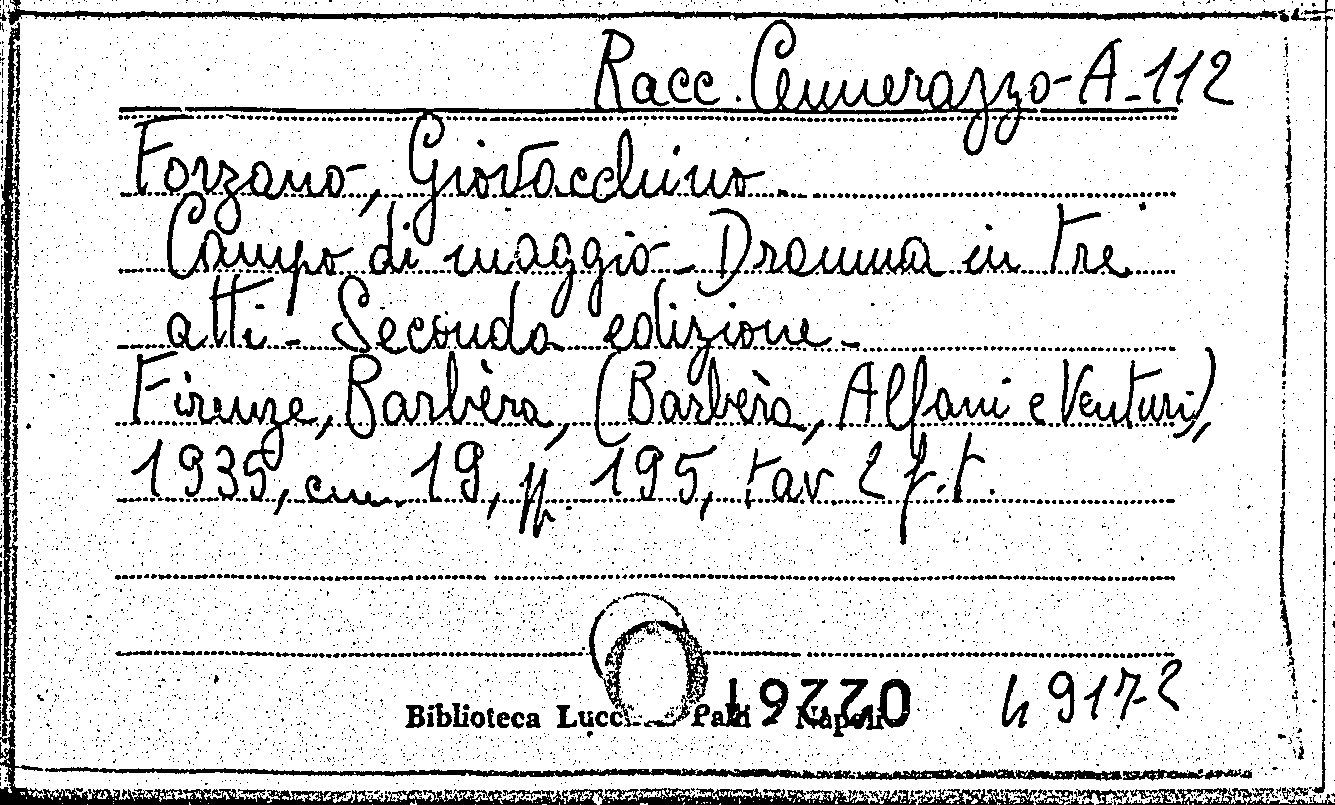 Racc. Cennerazzo-A-112
Forzano, Giovacchino.
Campo di maggio - Dramma in tre
atti - Seconda edizione -
Firenze, Barbèra, (Barbèra, Alfani e Venturi),
1935, cm. 19, pp. 195, tav 2 f.t.
Biblioteca Napoli
49172